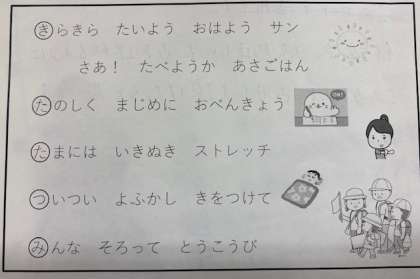 きらきら　たいよう　おはよう　サン
さあ！　たべようか　あさごはん
たのしく　まじめに　おべんきょう
たまには　いきぬき　ストレッチ
ついつい　よふかし　きをつけて
みんな　そろって　とうこうび